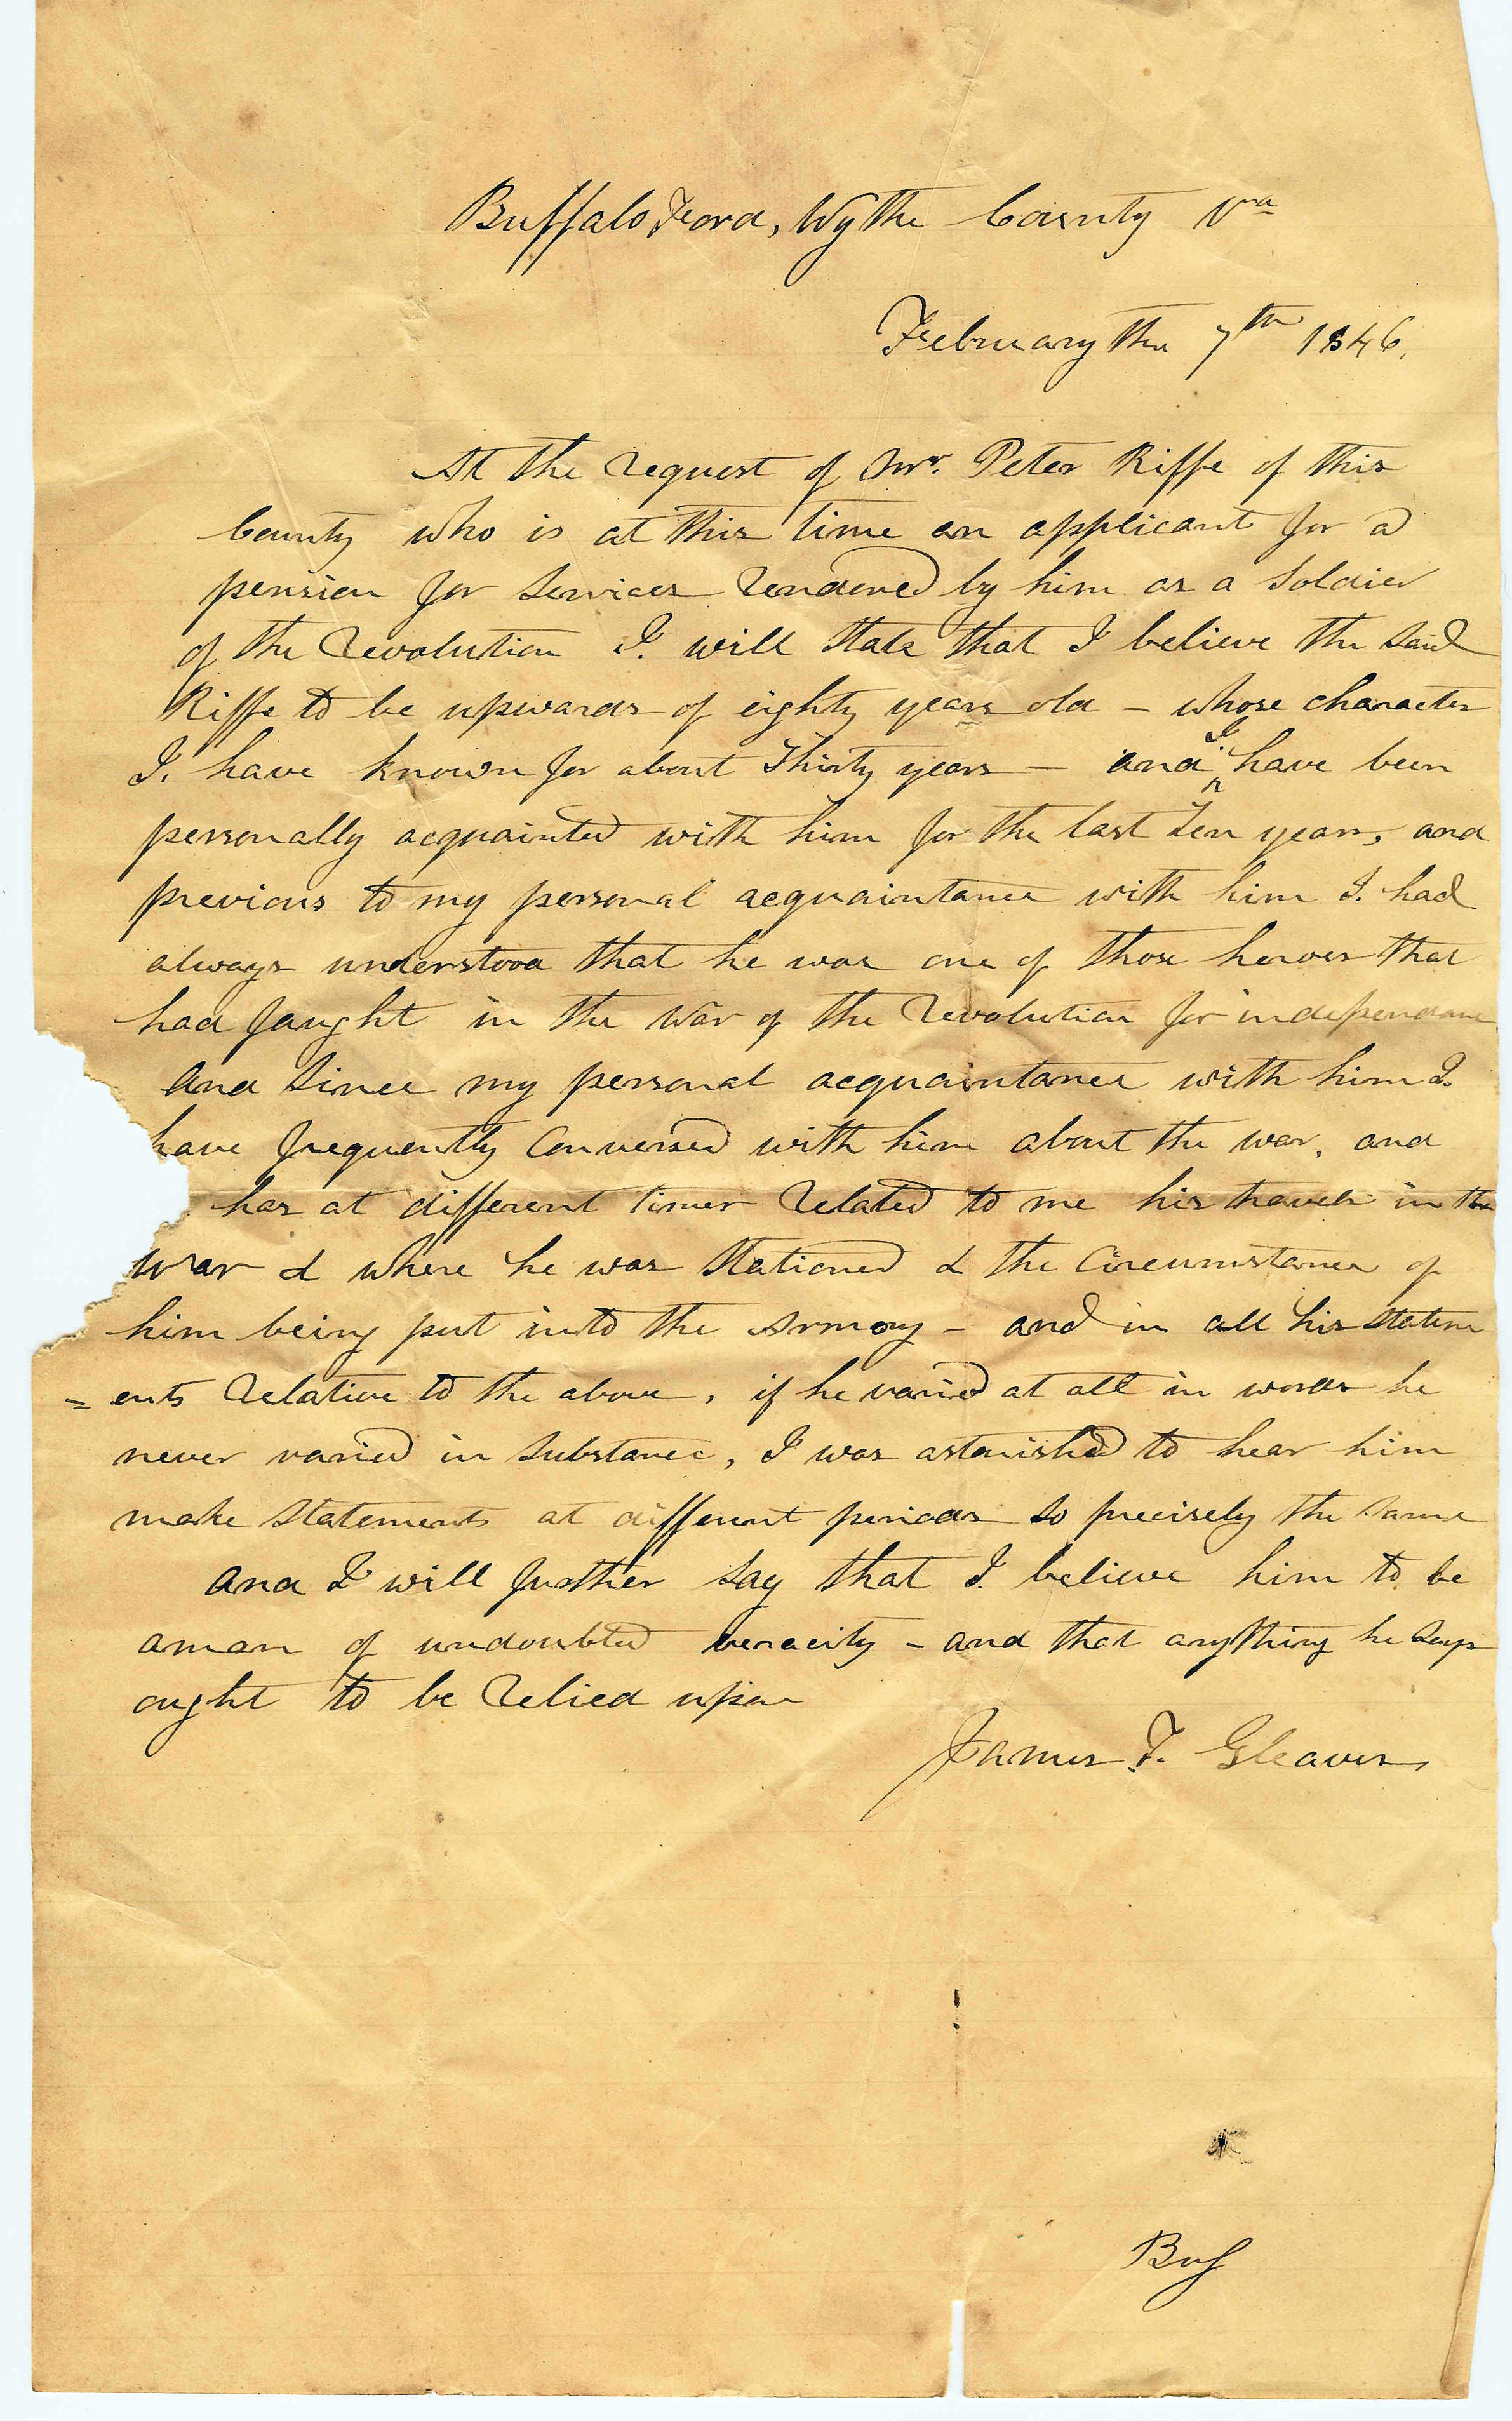 Buffalo Ford, Wythe County Va
February the 7th 1846.
At the request of Mr. Peter Riffe of this
County who is at this time an applicant for a
pension for Services rendered by him as a Soldier
of the revolution I. will State that I believe the said
Riffe to be upwards of eighty years old – whose character
I. have known for about Thirty years – and I have been
personally acquainted with him for the last Ten years, and
previous to my personal acquaintance with him I. had
always understood that he was one of those heroes that
had faught in the War of the revolution for independance
And Since my personal acquaintance with him I.
have frequently Conversed with him about the war. and
has at different times related to me his travels in the
War & where he was Stationed & the Circumstance of
him being put into the Armory – and in all his Statem
= ents relative to the above, if he varied at all in words he
never varied in Substance, I was astonished to hear him
make Statements at different periods So precisely the Same
And I will further Say that I. believe him to be
a man of undoubted veracity – and that anything he Says
ought to be relied upon
James T. Gleaves
Buf